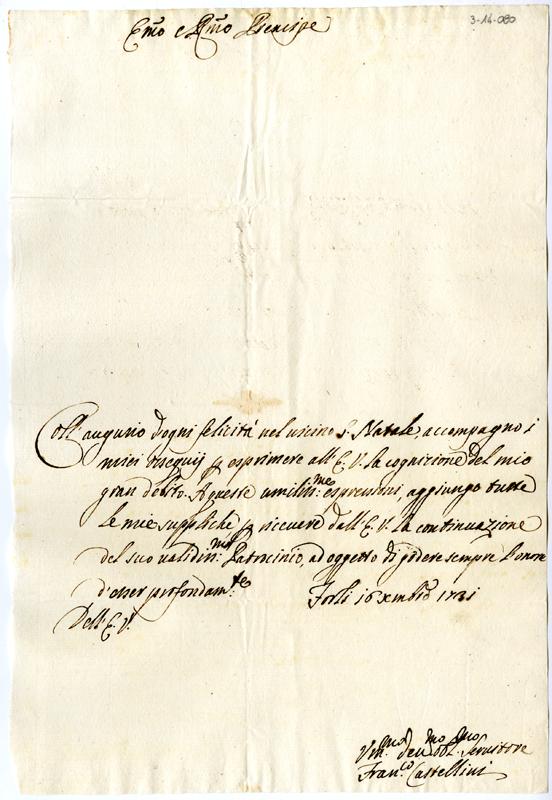 3-14-080
Emo e Rmo Principe
Coll'augurio d'ogni felicità nel vicino S. Natale, accompagno i
miei ossequij p esprimere all'E. V. la cognizione del mio
gran debito. A queste umiliss:me espressioni, aggiungo tutte
le mie suppliche p ricevere dall'E. V. la continuazione
del suo validiss:mo Patrocinio, ad oggetto di godere sempre l'onore
d'esser profondam:te Forlì 16 Xmbre 1731
Dell'E. V.
Um:mo dev:mo obl:mo Servitore
Fran:co Castellini